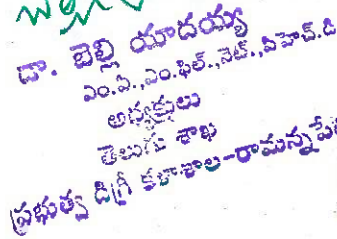 డా. బెల్లి యాదయ్య
ఎం.ఏ.,ఎం.ఫిల్.,నెట్.,పిహెచ్.డి
అధ్యక్షులు
తెలుగు శాఖ
ప్రభుత్వ డిగ్రీ కళాశాల-రామన్నపేట